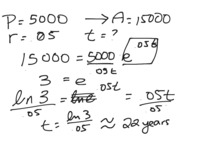 P = 5000 → A = 15000
r = .05 t = ?
15000 = 5000 e^.05t
3 = e^.05t
ln 3 / .05 = .05t / .05
t = ln 3 / .05 ≈ 22 years